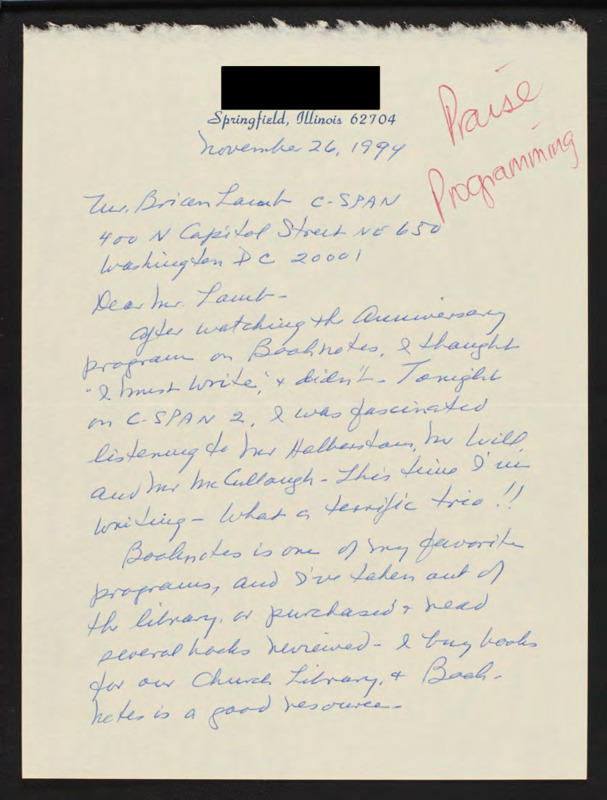 Springfield, Illinois 62704
November 26, 1994
Praise
Programming
Mr. Brian Lamb C-SPAN
400 N Capitol Street NE 650
Washington DC 20001
Dear Mr. Lamb-
After watching the Anniversary
program on Booknotes, I thought
"I must write," & didn't. Tonight
on C-SPAN 2, I was fascinated
listening to Mr Halberstam, Mr Will
and Mr McCullough - This time I'm
writing - What a terrific trio!!
Booknotes is one of my favorite
programs, and I've taken out of
the library, or purchased & read
several books reviewed - I buy books
for our Church Library, & Book-
notes is a good resource-